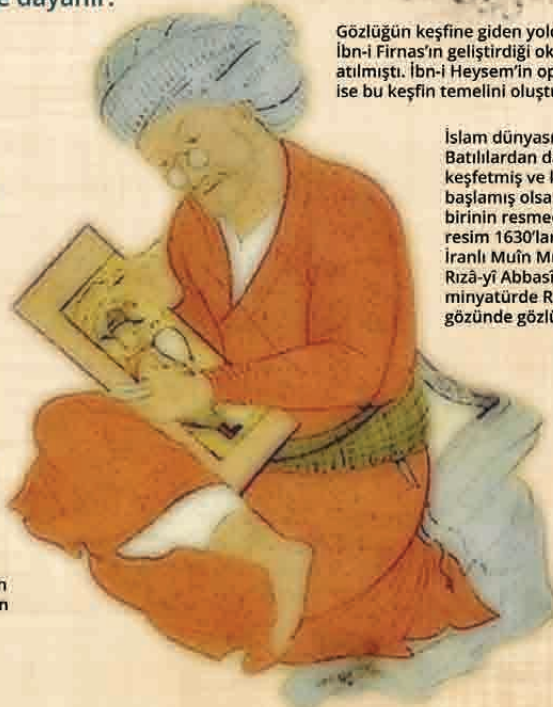 dayanır.
Gözlüğün keşfine giden yolc
İbn-i Firnas’ın geliştirdiği ok
atılmıştı. İbn-i Heysem’in op
ise bu keşfin temelini oluştu
İslam dünyası
Batılılardan da
keşfetmiş ve k
başlamış olsa
birinin resmed
resim 1630’lar
İranlı Muîn Mu
Rızâ-yî Abbasî
minyatürde R
gözünde gözlü
n
n